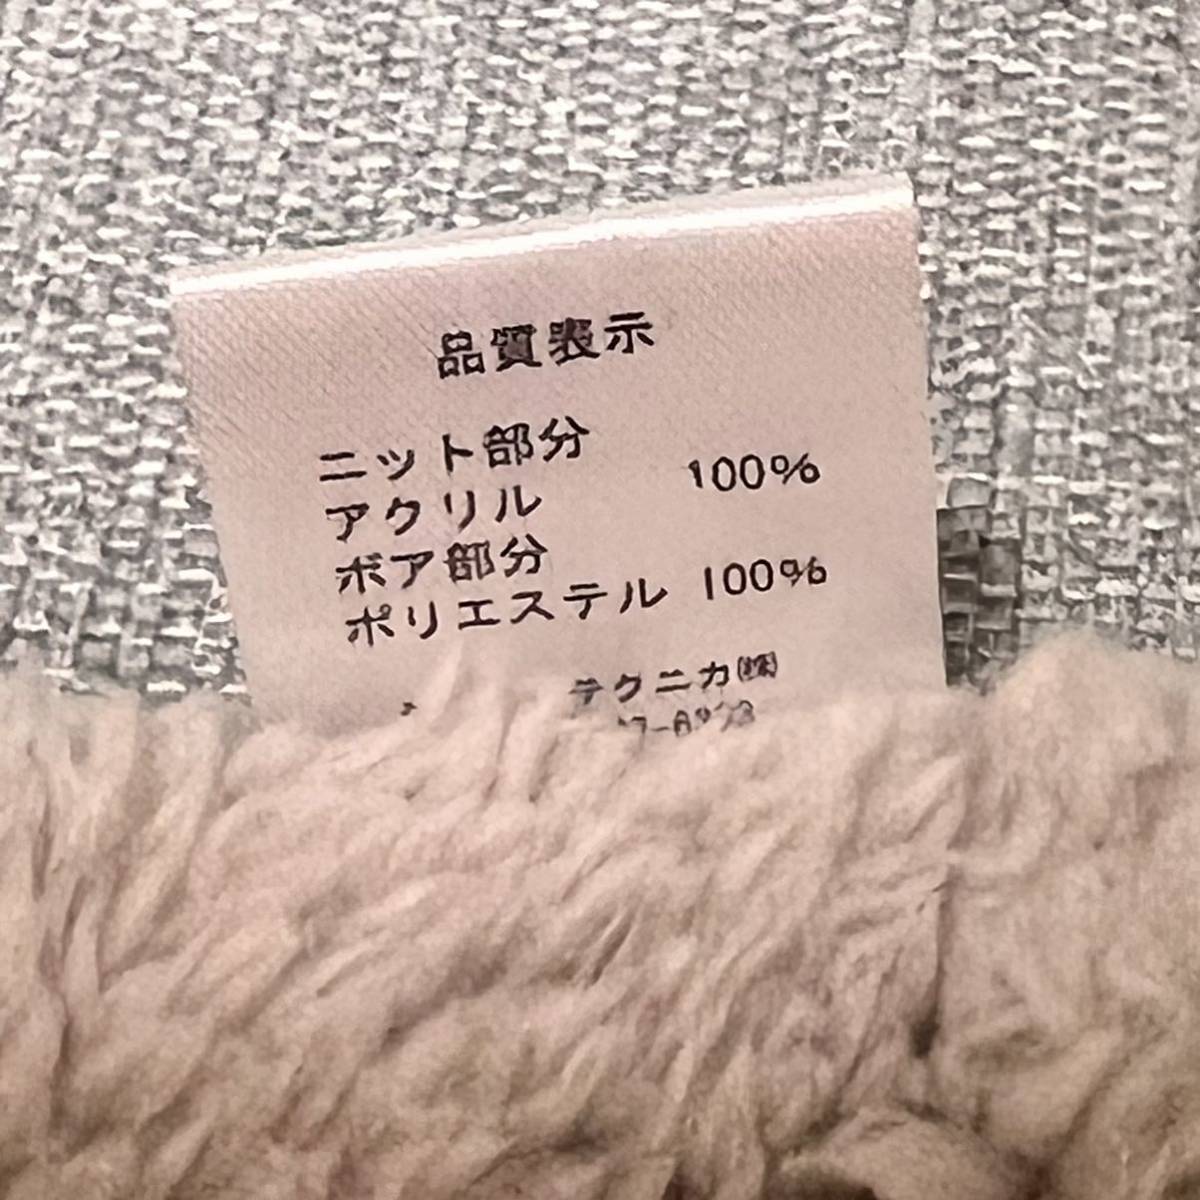 品質表示
ニット部分
アクリル 100%
ボア部分
ポリエステル 100%
テクニカ㈱